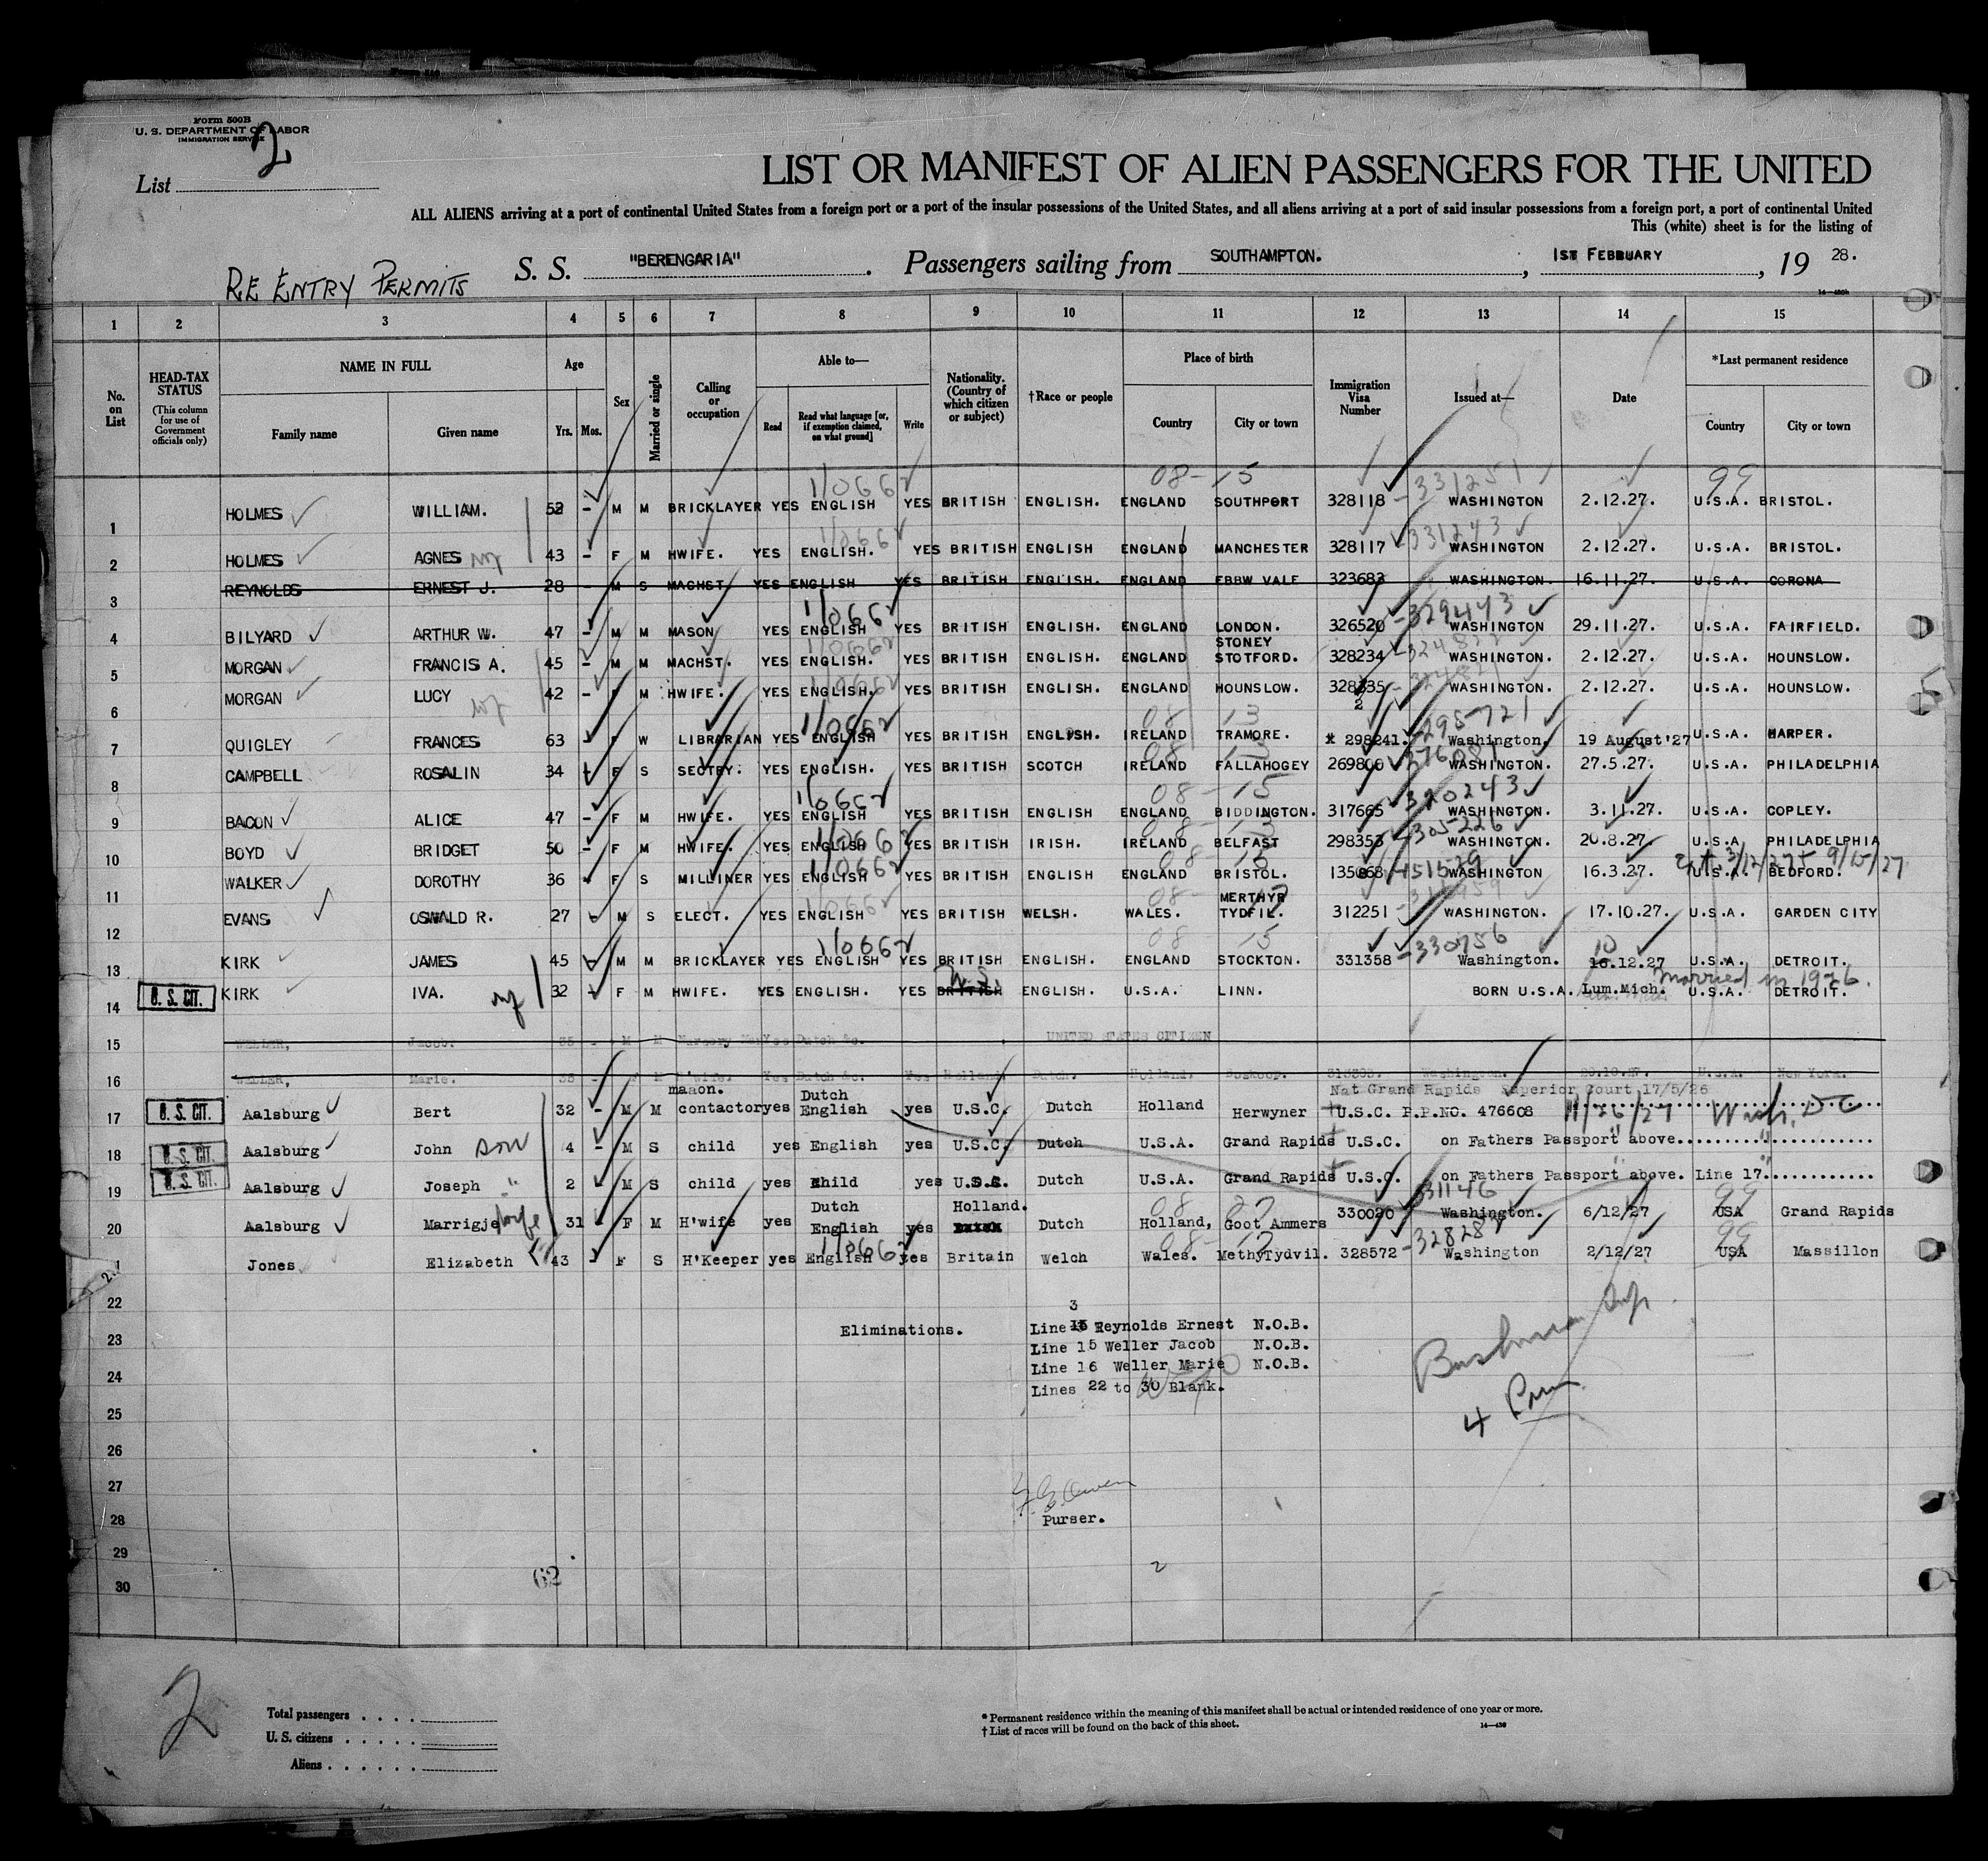 Form 500B
U. S. DEPARTMENT OF LABOR
IMMIGRATION SERVICE
2
List
LIST OR MANIFEST OF ALIEN PASSENGERS FOR THE UNITED
ALL ALIENS arriving at a port of continental United States from a foreign port or a port of the insular possessions of the United States, and all aliens arriving at a port of said insular possessions from a foreign port, a port of continental United
This (white) sheet is for the listing of
RE ENTRY PERMITS S. S. "BERENGARIA" . Passengers sailing from SOUTHAMPTON. , 1ST FEBRUARY , 19 28.
1 2 3 4 5 6 7 8 9 10 11 12 13 14 15
No. on List
HEAD-TAX STATUS (This column for use of Government officials only)
NAME IN FULL Family name Given name
Age Yrs. Mos.
Sex
Married or single
Calling or occupation
Able to— Read Read what language [or, if exemption claimed, on what ground] Write
Nationality. (Country of which citizen or subject)
†Race or people
Place of birth Country City or town
Immigration Visa Number
Issued at—
Date
*Last permanent residence Country City or town
08-15 331251 99
1 HOLMES WILLIAM. 52 - M M BRICKLAYER YES ENGLISH YES BRITISH ENGLISH. ENGLAND SOUTHPORT 328118 WASHINGTON 2.12.27. U.S.A. BRISTOL.
331243
2 HOLMES AGNES wf 43 - F M HWIFE. YES ENGLISH. YES BRITISH ENGLISH ENGLAND MANCHESTER 328117 WASHINGTON 2.12.27. U.S.A. BRISTOL.
3 REYNOLDS ERNEST J. 28 - M S MACHST. YES ENGLISH YES BRITISH ENGLISH. ENGLAND EBBW VALE 323683 WASHINGTON. 16.11.27. U.S.A. CORONA
329443
4 BILYARD ARTHUR W. 47 - M M MASON YES ENGLISH YES BRITISH ENGLISH. ENGLAND LONDON. 326520 WASHINGTON 29.11.27. U.S.A. FAIRFIELD.
5 MORGAN FRANCIS A. 45 - M M MACHST. YES ENGLISH. YES BRITISH ENGLISH. ENGLAND STONEY STOTFORD. 328234 WASHINGTON. 2.12.27. U.S.A. HOUNSLOW.
6 MORGAN LUCY wf 42 - F M HWIFE. YES ENGLISH. YES BRITISH ENGLISH. ENGLAND HOUNSLOW. 328235 WASHINGTON. 2.12.27. U.S.A. HOUNSLOW.
08 13 295721
7 QUIGLEY FRANCES 63 - F W LIBRARIAN YES ENGLISH YES BRITISH ENGLISH. IRELAND TRAMORE. 298241. Washington. 19 August'27 U.S.A. HARPER.
8 CAMPBELL ROSALIN 34 - F S SECTRY. YES ENGLISH. YES BRITISH SCOTCH IRELAND FALLAHOGEY 269800 WASHINGTON. 27.5.27. U.S.A. PHILADELPHIA
08-15 320243
9 BACON ALICE 47 - F M HWIFE. YES ENGLISH YES BRITISH ENGLISH ENGLAND BIDDINGTON. 317665 WASHINGTON. 3.11.27. U.S.A. COPLEY.
08-13 305226
10 BOYD BRIDGET 50 - F M HWIFE. YES ENGLISH YES BRITISH IRISH. IRELAND BELFAST 298353 WASHINGTON. 20.8.27. U.S.A PHILADELPHIA
08-15
11 WALKER DOROTHY 36 - F S MILLINER YES ENGLISH YES BRITISH ENGLISH ENGLAND BRISTOL. 135068 WASHINGTON 16.3.27. U.S.A. BEDFORD.
12 EVANS OSWALD R. 27 - M S ELECT. YES ENGLISH YES BRITISH WELSH. WALES. MERTHYR TYDFIL. 312251 WASHINGTON. 17.10.27. U.S.A. GARDEN CITY
08 15 330756 10
13 KIRK JAMES 45 - M M BRICKLAYER YES ENGLISH YES BRITISH ENGLISH. ENGLAND STOCKTON. 331358 Washington. 16.12.27 U.S.A. DETROIT.
U.S. married in 1926.
U. S. CIT. 14 KIRK IVA. wf 32 - F M HWIFE. YES ENGLISH. YES BRITISH ENGLISH. U.S.A. LINN. BORN U.S.A. Lum.Mich. U.S.A. DETROIT.
15 WELLER, Jacob. 35 - M M Yes Dutch &c. UNITED STATES CITIZEN
16 WELLER, Marie. 35 - F M H'wife. Yes Dutch &c. Yes Holland Dutch. Holland. Boskoop. Washington. U.S.A. New York.
maaon. Dutch Nat Grand Rapids Superior Court 17/5/26
U. S. CIT. 17 Aalsburg Bert 32 - M M contactor yes English yes U.S.C. Dutch Holland Herwyner U.S.C. P.P.NO. 476608 11/26/27 Wash. DC
U. S. CIT. 18 Aalsburg John son 4 - M S child yes English yes U.S.C. Dutch U.S.A. Grand Rapids U.S.C. on Fathers Passport above.
U. S. CIT. 19 Aalsburg Joseph " 2 M S child yes child yes U.S.C. Dutch U.S.A. Grand Rapids U.S.C. on Fathers Passport above. Line 17
Dutch Holland. 08 27 331146 99
20 Aalsburg Marrigje wife 31 - F M H'wife yes English yes Dutch Holland, Goot Ammers 330020 Washington. 6/12/27 USA Grand Rapids
328282 99
21 Jones Elizabeth 43 - F S H'Keeper yes English yes Britain Welch Wales. MethyTydvil. 328572 Washington 2/12/27 USA Massillon
22
23 Eliminations. Line 3 Reynolds Ernest N.O.B.
Line 15 Weller Jacob N.O.B.
24 Line 16 Weller Marie N.O.B.
Lines 22 to 30 Blank.
25
26
27
28 Purser.
29
30
62
2
2
Total passengers . . . .
U. S. citizens . . . . .
Aliens . . . . . .
* Permanent residence within the meaning of this manifest shall be actual or intended residence of one year or more.
† List of races will be found on the back of this sheet.
14—430